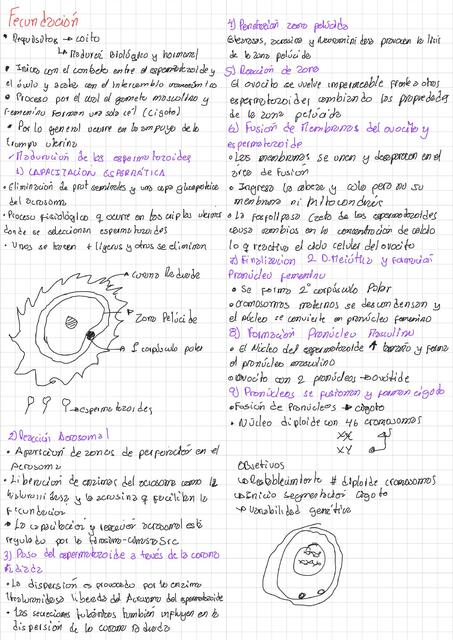 Fecundación
• Requisitos → coito
↳ Madurez Biológica y hormonal
• Inicia con el contacto entre el espermatozoide y
el óvulo y acaba con el intercambio cromosómico
• Proceso por el cual el gameto masculino y
femenino forman una sola cel (Cigoto)
• Por lo general ocurre en la ampolla de la
trompa uterina
✓ Maduración de los espermatozoides
1) CAPACITACION ESPERMÁTICA
• Eliminación de prot seminales y una capa glucoproteica
del acrosoma
• Proceso fisiológico q ocurre en las criptas uterinas
donde se seleccionan espermatozoides
• Unos se tornan + ligeros y otros se eliminan
Corona Radiada
Zona Pelúcida
1 corpúsculo polar
espermatozoides
2) Reacción Acrosomal
• Aparición de zonas de perforación en el
Acrosoma
• Liberación de enzimas del acrosoma como la
hialuronidasa y la acrosina q facilitan la
fecundación
• La capacitación y reacción acrosomal está
regulada por la tirosina-cinasa Src
3) Paso del espermatozoide a través de la corona
Radiada
• La dispersión es provocada por la enzima
Hialuronidasa liberada del Acrosoma del espermatozoide
• Las secreciones tubáricas también influyen en la
dispersión de la corona Radiada
4) Penetración zona pelúcida
Esterasas, acrosina y neuraminidasa provocan la lisis
de la zona pelúcida
5) Reacción de zona
El ovocito se vuelve impermeable frente a otros
espermatozoides cambiando las propiedades
de la zona pelúcida
6) Fusión de Membranas del ovocito y
espermatozoide
• Las membranas se unen y desaparecen en el
área de Fusión
• Ingresa la cabeza y cola pero no su
membrana ni mitocondrias
• La fosfolipasa C zeta de los espermatozoides
causa cambios en la concentración de calcio
lo q reactiva el ciclo celular del ovocito
7) Finalización 2 D. Meiótica y Formación
Pronúcleo femenino
• Se forma 2° corpúsculo Polar
• Cromosomas maternos se descondensan y el
núcleo se convierte en pronúcleo femenino
8) Formación Pronúcleo Masculino
• El Núcleo del espermatozoide ↑ tamaño y forma
el pronúcleo masculino
• Ovocito con 2 pronúcleos → Oótide
9) Pronúcleos se fusionan y forman cigoto
• Fusión de Pronúcleos → cigoto
• Núcleo diploide con 46 cromosomas
XX
XY
Objetivos
Restablecimiento # diploide cromosomas
Inicio Segmentación Cigoto
Variabilidad genética